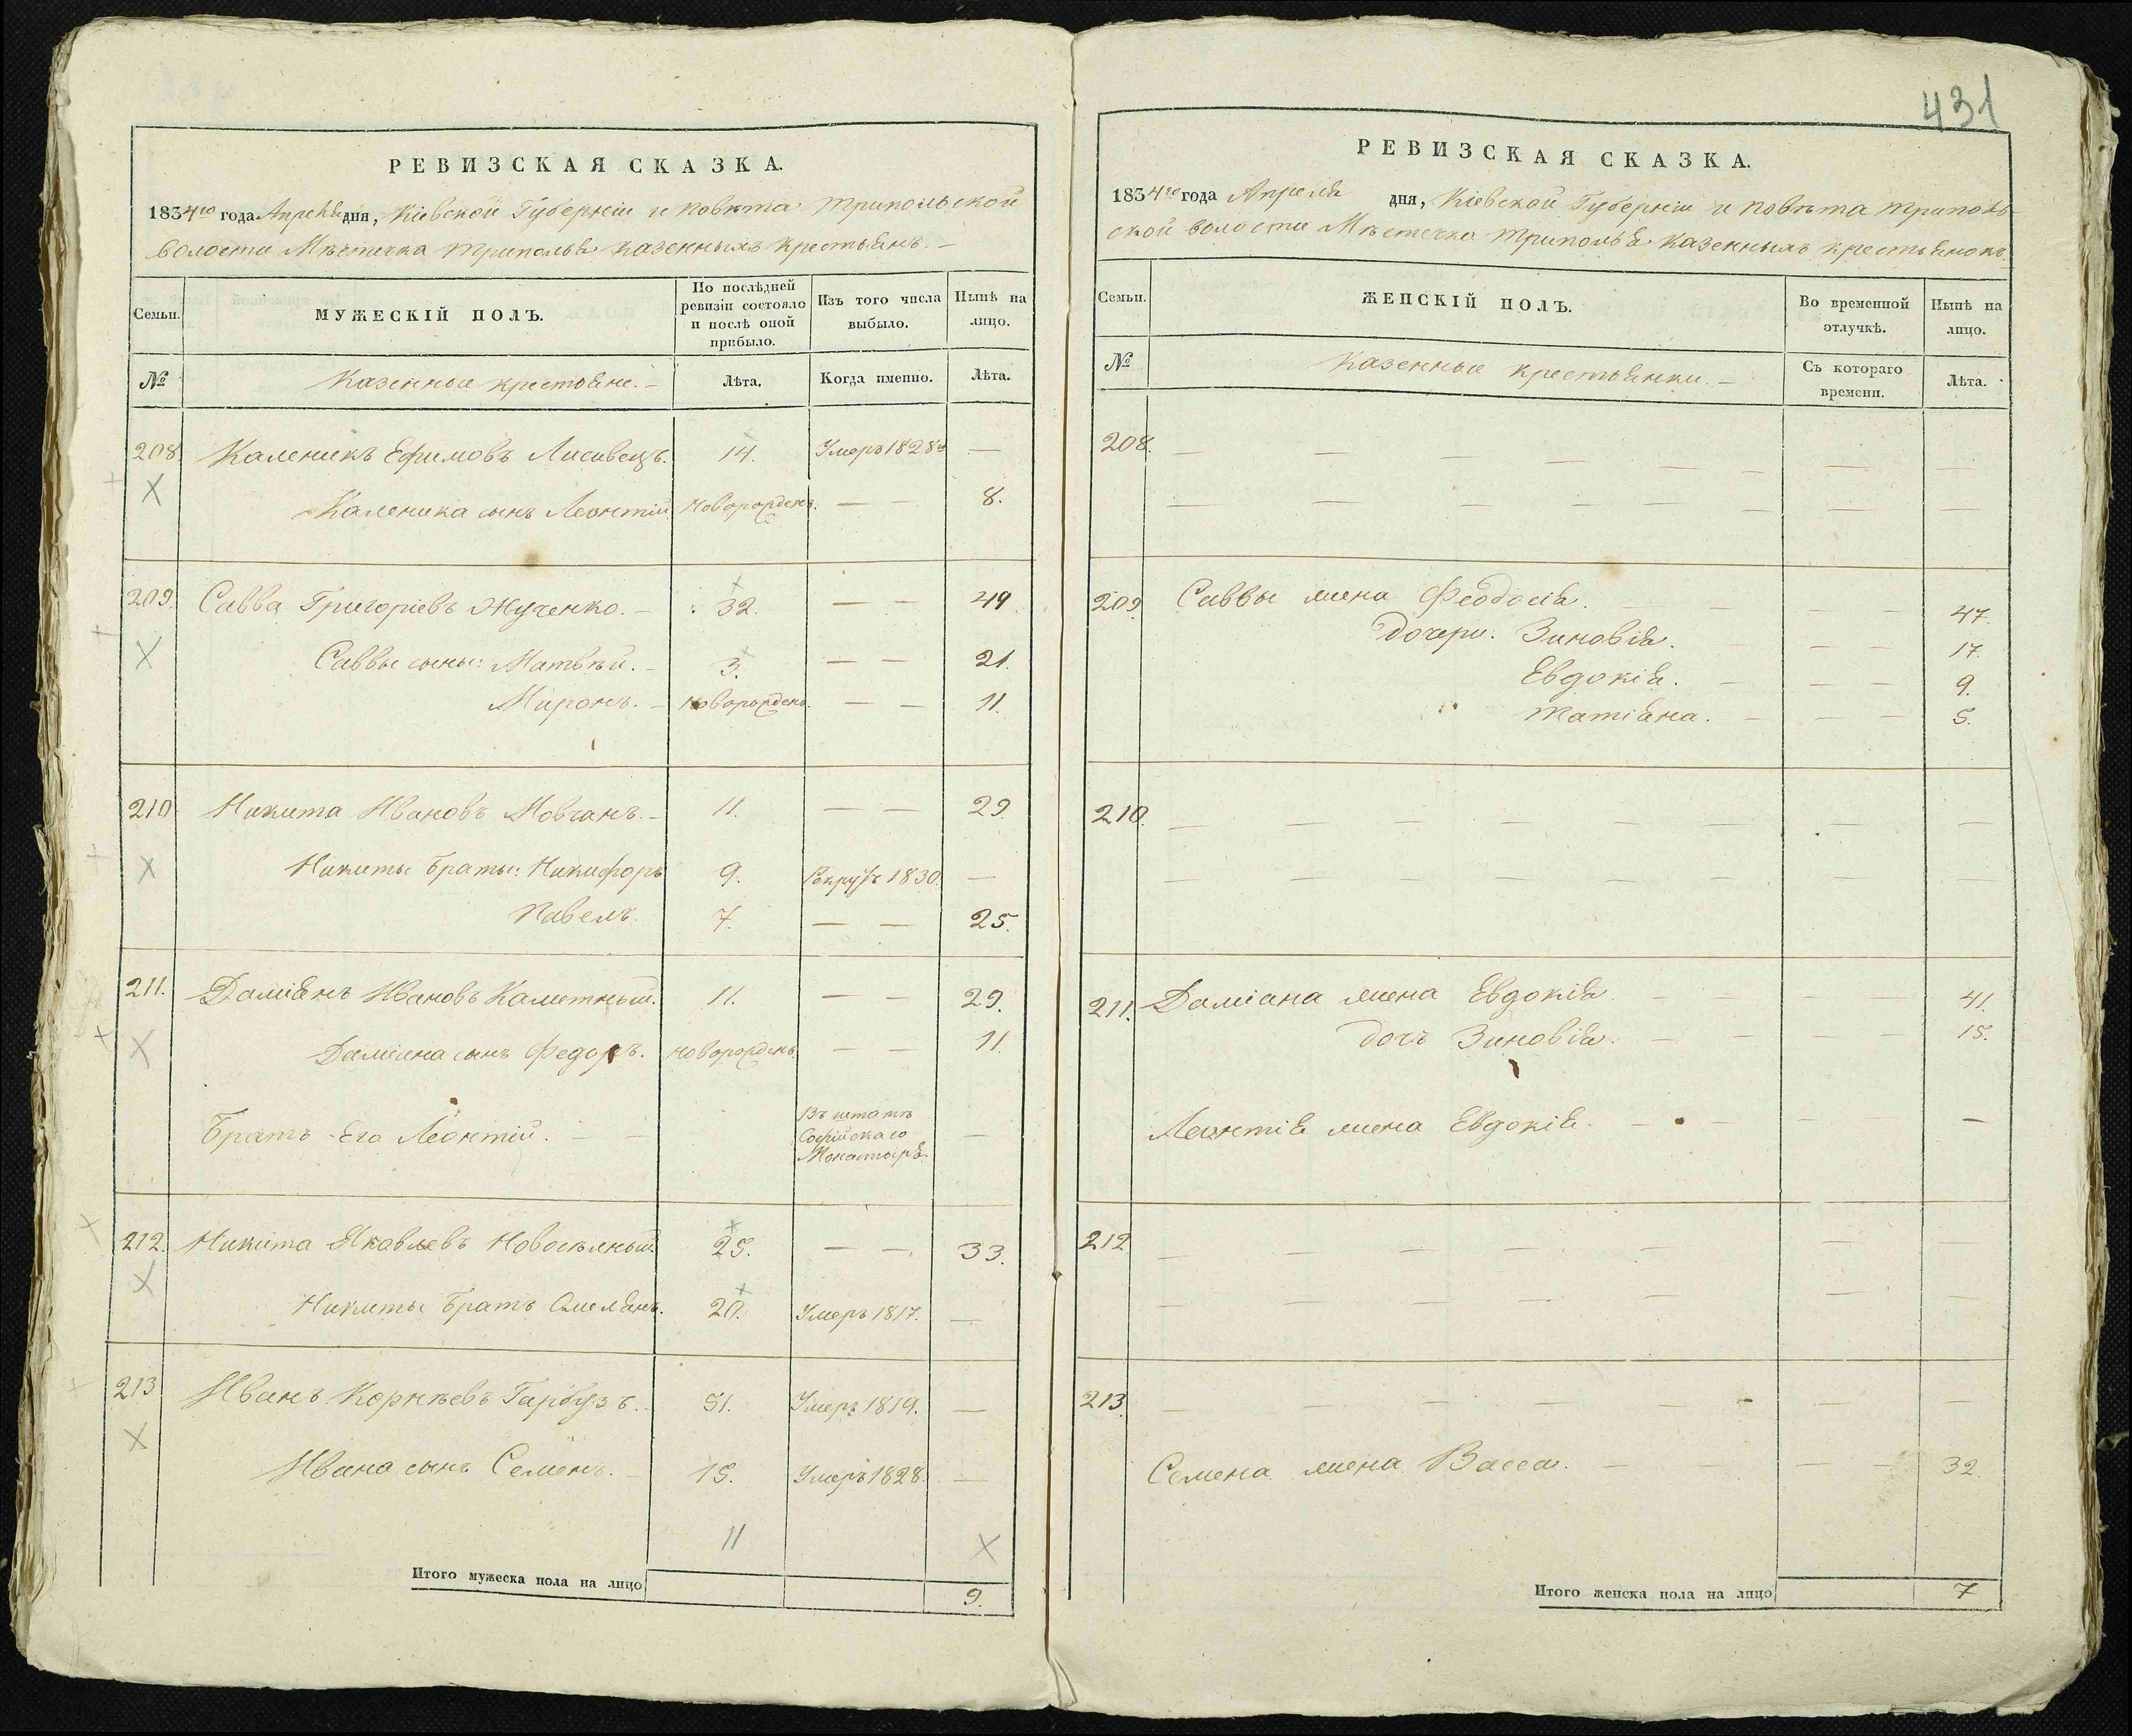 431
РЕВИЗСКАЯ СКАЗКА.
1834го года Апреля дня, Кіевской Губерніи и повѣта Трипольской
волости Мѣстечка Триполья казенныхъ крестьянъ.
Семьи.
МУЖЕСКІЙ ПОЛЪ.
По послѣдней ревизіи состояло и послѣ оной прибыло.
Изъ того числа выбыло.
Нынѣ на лицо.
№
Казенные крестьяне.
Лѣта.
Когда именно.
Лѣта.
208 Каленикъ Ефимовъ Лисивецъ. 14. Умеръ 1828го —
Каленика сынъ Леонтій новорожденъ. — — 8.
209. Савва Григоріевъ Жученко. — 32. — — 49
Саввы сыны: Матвѣй. — 3. — — 21.
Миронъ. — новорожденъ. — — 11.
210 Никита Ивановъ Мовчанъ. — 11. — — 29
Никиты братья: Никифоръ 9. Рекрутъ 1830. —
Павелъ. 7. — — 25.
211. Даміянъ Ивановъ Каметный. 11. — — 29.
Даміана сынъ Федоръ. новорожденъ. — — 11
Братъ Его Леонтій. — — Въ штатѣ Софійскаго Монастыря. —
212. Никита Яковлевъ Новоселный. 25. — — 33.
Никиты братъ Омелянъ. 20. Умеръ 1817. —
213 Иванъ Корнѣевъ Гарбузъ. 51. Умеръ 1819. —
Ивана сынъ Семенъ. — 15. Умеръ 1828. —
11
Итого мужеска пола на лицо 9.
РЕВИЗСКАЯ СКАЗКА.
1834го года Апреля дня, Кіевской Губерніи и повѣта Триполь-
ской волости Мѣстечка Триполья казенныхъ крестьянокъ.
Семьи.
ЖЕНСКІЙ ПОЛЪ.
Во временной отлучкѣ.
Нынѣ на лицо.
№
Казенные крестьянки. —
Съ котораго времени.
Лѣта.
208. — — — — — — — —
— — — — — — —
209 Саввы жена Феодосія. — — 47.
дочери: Зиновія. — — 17.
Евдокія. — — — 9.
Татіяна. — — — 5.
210. — — — — — — — — —
— — — — — — — — —
211. Даміана жена Евдокія — — 41.
дочь Зиновія. — — — — 15.
Леонтія жена Евдокія. — — — — —
212 — — — — — — — —
— — — — — — —
213. — — — — — — — — —
Семена жена Васса. — — — — 32.
Итого женска пола на лицо 7